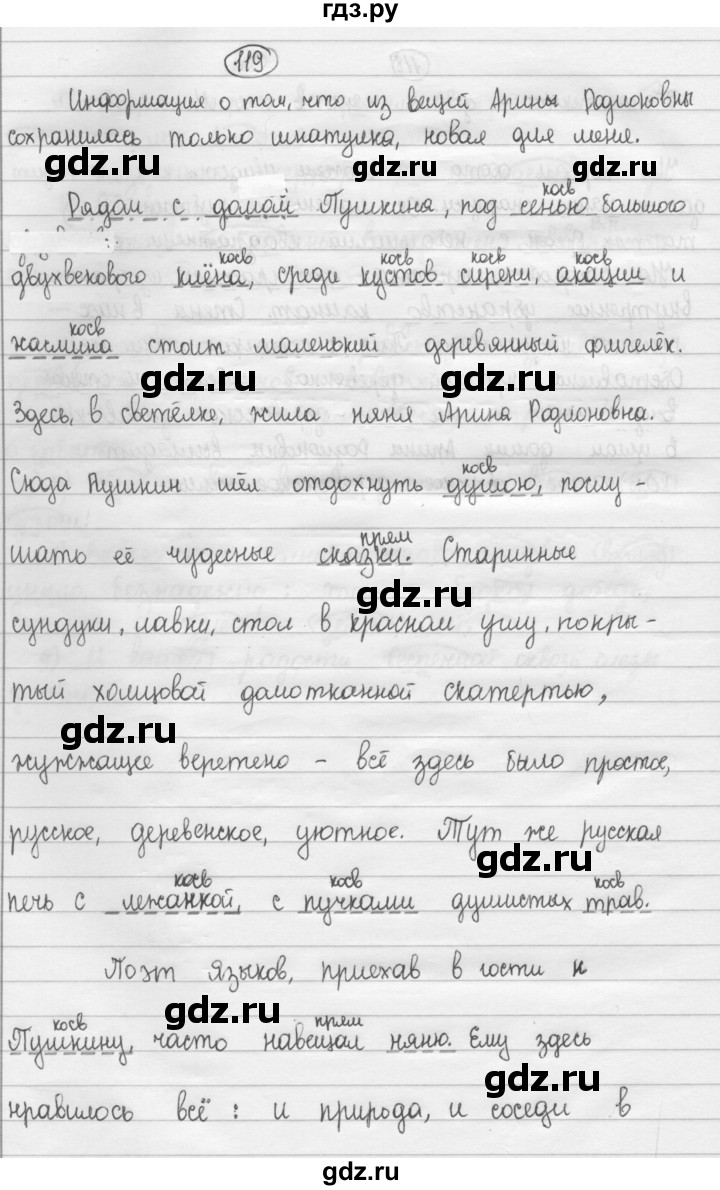 гдз.ру
119
Информация о том, что из вещей Арины Родионовны
сохранилась только шкатулка, новая для меня.
gdz.ru gdz.ru gdz.ru
косв
Рядом с домом Пушкина, под сенью большого
косв косв косв косв
двухвекового клёна, среди кустов сирени, акации и
косв
жасмина стоит маленький деревянный флигелёк.
gdz.ru gdz.ru
Здесь, в светёлке, жила няня Арина Родионовна.
косв
Сюда Пушкин шёл отдохнуть душою, послу-
gdz.ru gdz.ru
прям
шать её чудесные сказки. Старинные
gdz.ru
сундуки, лавки, стол в красном углу, покры-
тый холщовой домотканной скатертью,
gdz.ru gdz.ru
жужжащее веретено – всё здесь было простое,
русское, деревенское, уютное. Тут же русская
gdz.ru
косв косв косв
печь с лежанкой, с пучками душистых трав.
gdz.ru
Поэт Языков, приехав в гости к
gdz.ru
косв прям
Пушкину, часто навещал няню. Ему здесь
gdz.ru
нравилось всё: и природа, и соседи в
gdz.ru